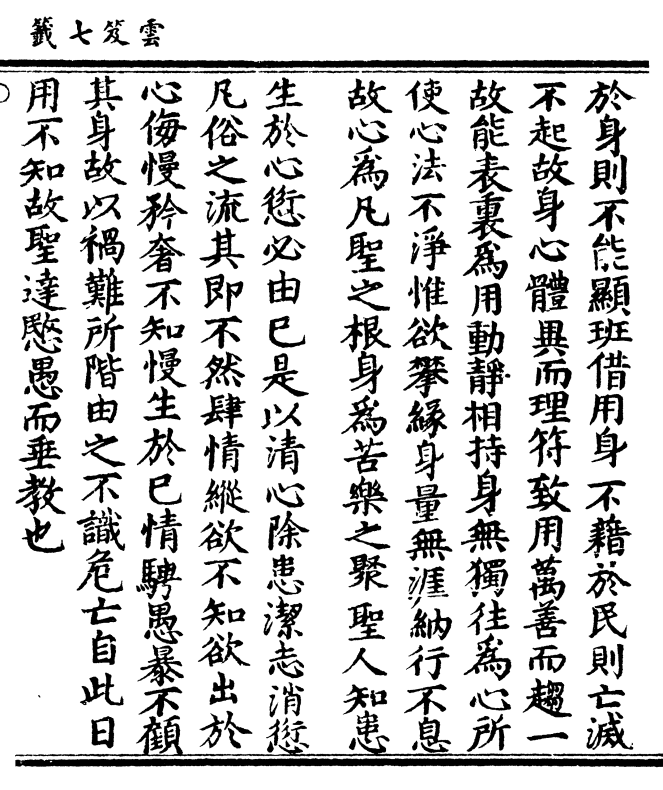 雲笈七籤
於身則不能顯班借用身不藉於民則亡滅
不起故身心體異而理符致用萬善而趨一
故能表裏為用動靜相持身無獨往為心所
使心法不淨惟欲攀緣身量無涯納行不息
故心為凡聖之根身為苦樂之聚聖人知患
生於心愆必由已是以清心除患潔志消愆
凡俗之流其即不然肆情縱欲不知欲出於
心侮慢矜奢不知慢生於已情騁愚暴不顧
其身故以禍難所階由之不識危亡自此日
用不知故聖達愍愚而垂教也